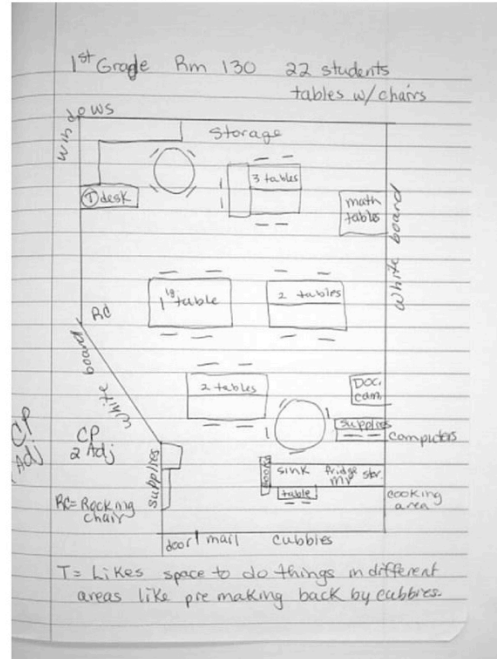 1st Grade Rm 130 22 students
tables w/chairs
Windows
Storage
T desk
3 tables
math
tables
White board
1 lg table
2 tables
RC
White board
2 tables
Doc.
cam
supplies
computers
CP
Adj
CP
2 Adj
supplies
books
sink fridge stor.
table
cooking
area
RC= Rocking
chair
door mail cubbies
T= Likes space to do things in different
areas like pre making back by cubbies.